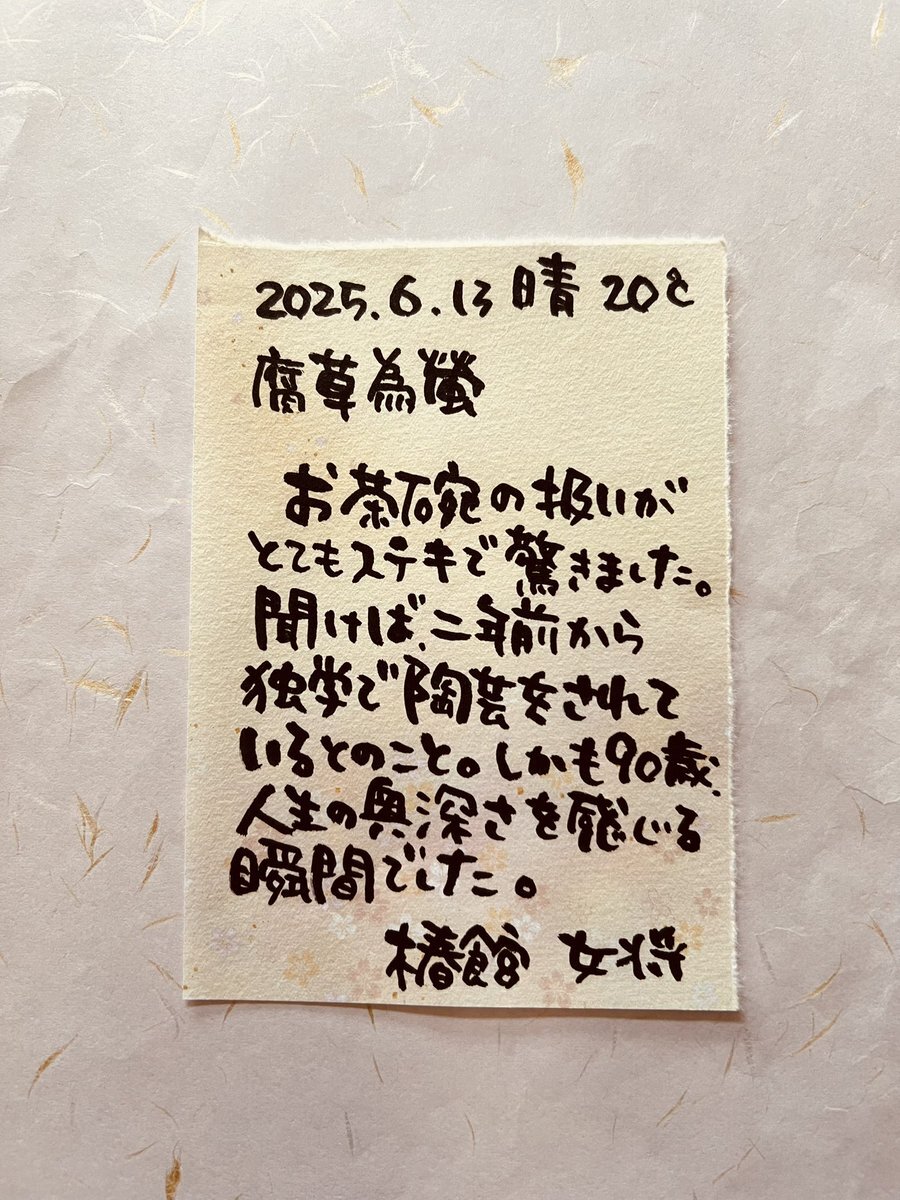 2025.6.13 晴 20℃
腐草為螢
お茶碗の扱いが
とてもステキで驚きました。
聞けば、二年前から
独学で陶芸をされて
いるとのこと。しかも90歳、
人生の奥深さを感じる
瞬間でした。
椿館 女将